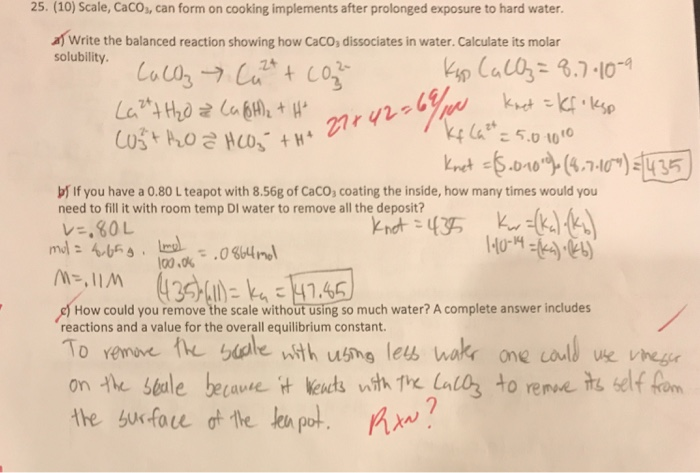 25. (10) Scale, CaCO₃, can form on cooking implements after prolonged exposure to hard water.
a) Write the balanced reaction showing how CaCO₃ dissociates in water. Calculate its molar
solubility.
CaCO₃ → Ca²⁺ + CO₃²⁻
Ksp CaCO₃ = 8.7·10⁻⁹
Ca²⁺ + H₂O ⇌ Ca(OH)₂ + H⁺
27+42=69/100
Knet = Kf · Ksp
CO₃²⁻ + H₂O ⇌ HCO₃⁻ + H⁺
Kf Ca²⁺ = 5.0·10¹⁰
Knet = (5.0·10¹⁰)·(8.7·10⁻⁹) = 435
b) If you have a 0.80 L teapot with 8.56g of CaCO₃ coating the inside, how many times would you
need to fill it with room temp DI water to remove all the deposit?
V = .80L
Knet = 435
Kw = (Ka)·(Kb)
mol = 8.65g · 1mol/100.06 = .0864mol
1·10⁻¹⁴ = (Ka)·(Kb)
M = .11M
(435)·(.11) = Ka = 47.85
c) How could you remove the scale without using so much water? A complete answer includes
reactions and a value for the overall equilibrium constant.
To remove the scale with using less water one could use vinegar
on the scale because it reacts with the CaCO₃ to remove its self from
the surface of the teapot.
Rxn?